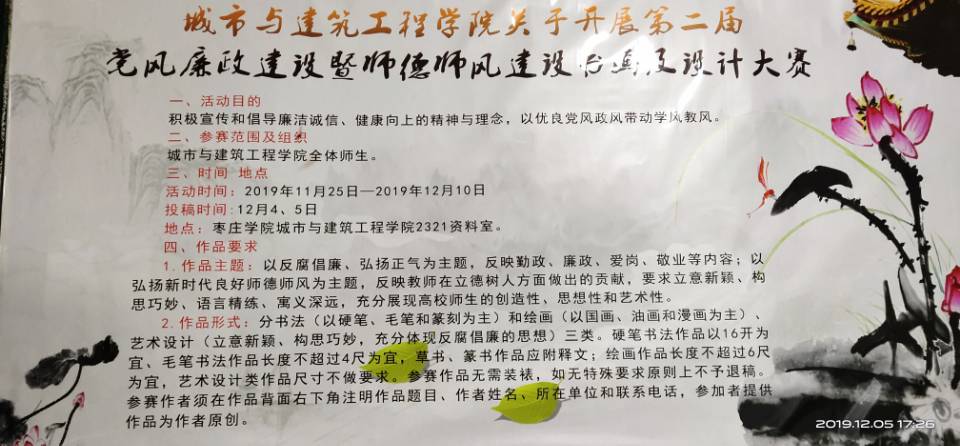 城市与建筑工程学院关于开展第二届
党风廉政建设暨师德师风建设书画及设计大赛
一、活动目的
积极宣传和倡导廉洁诚信、健康向上的精神与理念，以优良党风政风带动学风教风。
二、参赛范围及组织
城市与建筑工程学院全体师生。
三、时间 地点
活动时间：2019年11月25日—2019年12月10日
投稿时间:12月4、5日
地点：枣庄学院城市与建筑工程学院2321资料室。
四、作品要求
1.作品主题：以反腐倡廉、弘扬正气为主题，反映勤政、廉政、爱岗、敬业等内容；以
弘扬新时代良好师德师风为主题，反映教师在立德树人方面做出的贡献，要求立意新颖、构
思巧妙、语言精练、寓义深远，充分展现高校师生的创造性，思想性和艺术性。
2.作品形式：分书法（以硬笔、毛笔和篆刻为主）和绘画（以国画、油画和漫画为主）、
艺术设计（立意新颖、构思巧妙，充分体现反腐倡廉的思想）三类。硬笔书法作品以16开为
宜、毛笔书法作品长度不超过4尺为宜，草书、篆书作品应附释文；绘画作品长度不超过6尺
为宜，艺术设计类作品尺寸不做要求。参赛作品无需装裱，如无特殊要求原则上不予退稿。
参赛作者须在作品背面右下角注明作品题目、作者姓名、所在单位和联系电话，参加者提供
作品为作者原创。
2019.12.05 17:26